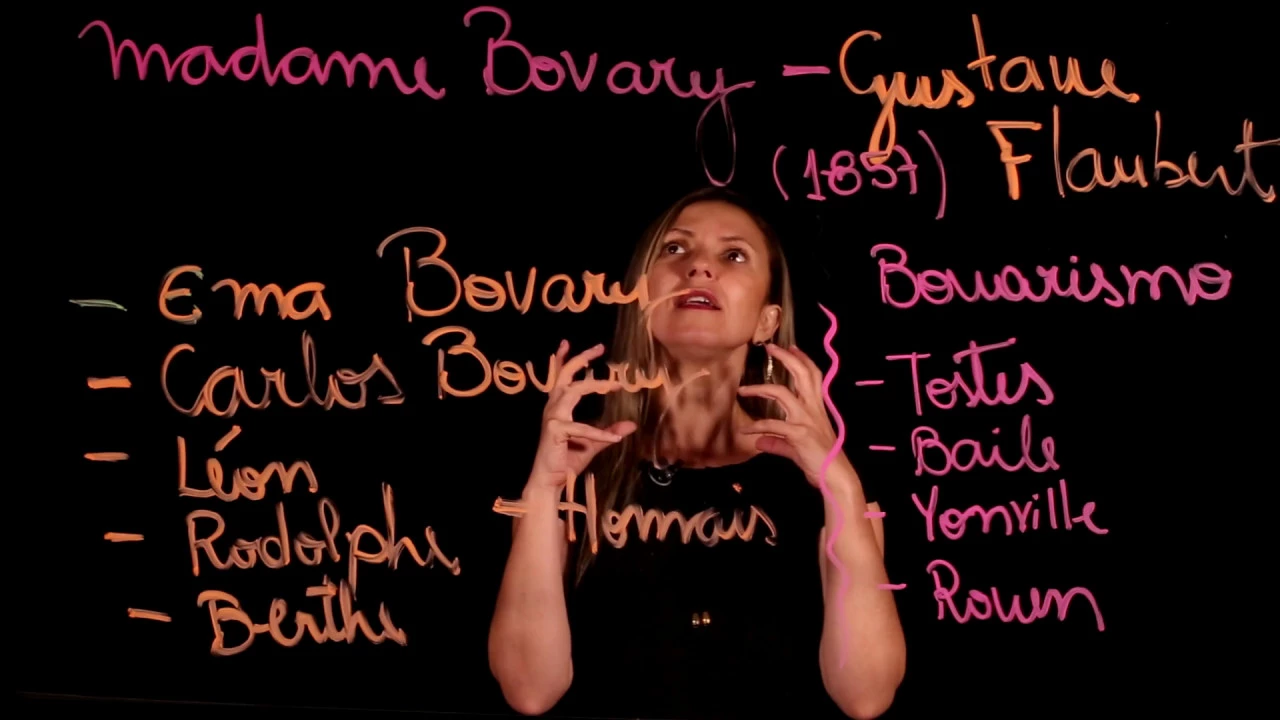 Madame Bovary - Gustave
(1857) Flaubert
- Ema Bovary
- Carlos Bovary
- Léon
- Rodolphe
- Berthe
- Homais
Bovarismo
- Tostes
- Baile
- Yonville
- Rouen